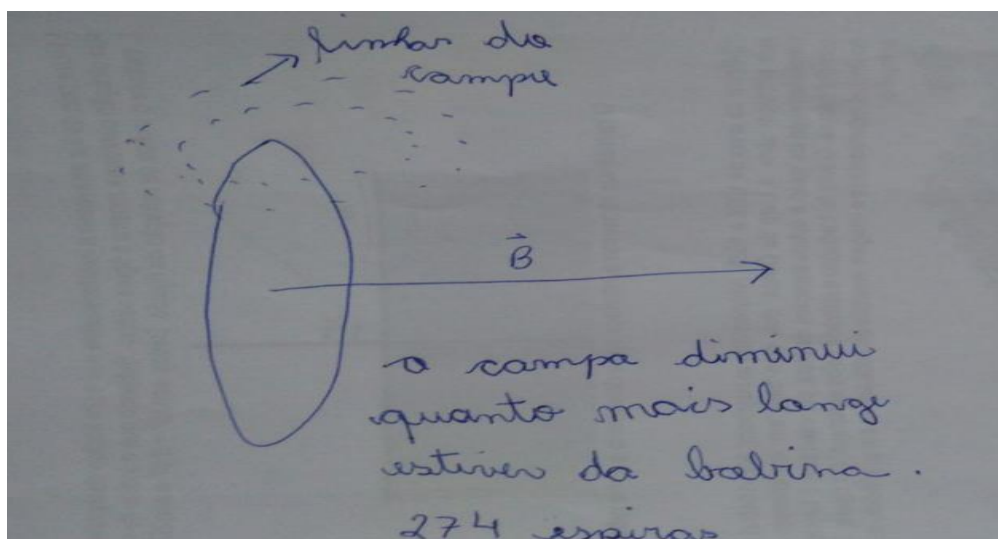 linhas de
campo
B
o campo diminui
quanto mais longe
estiver da bobina.
274 espiras